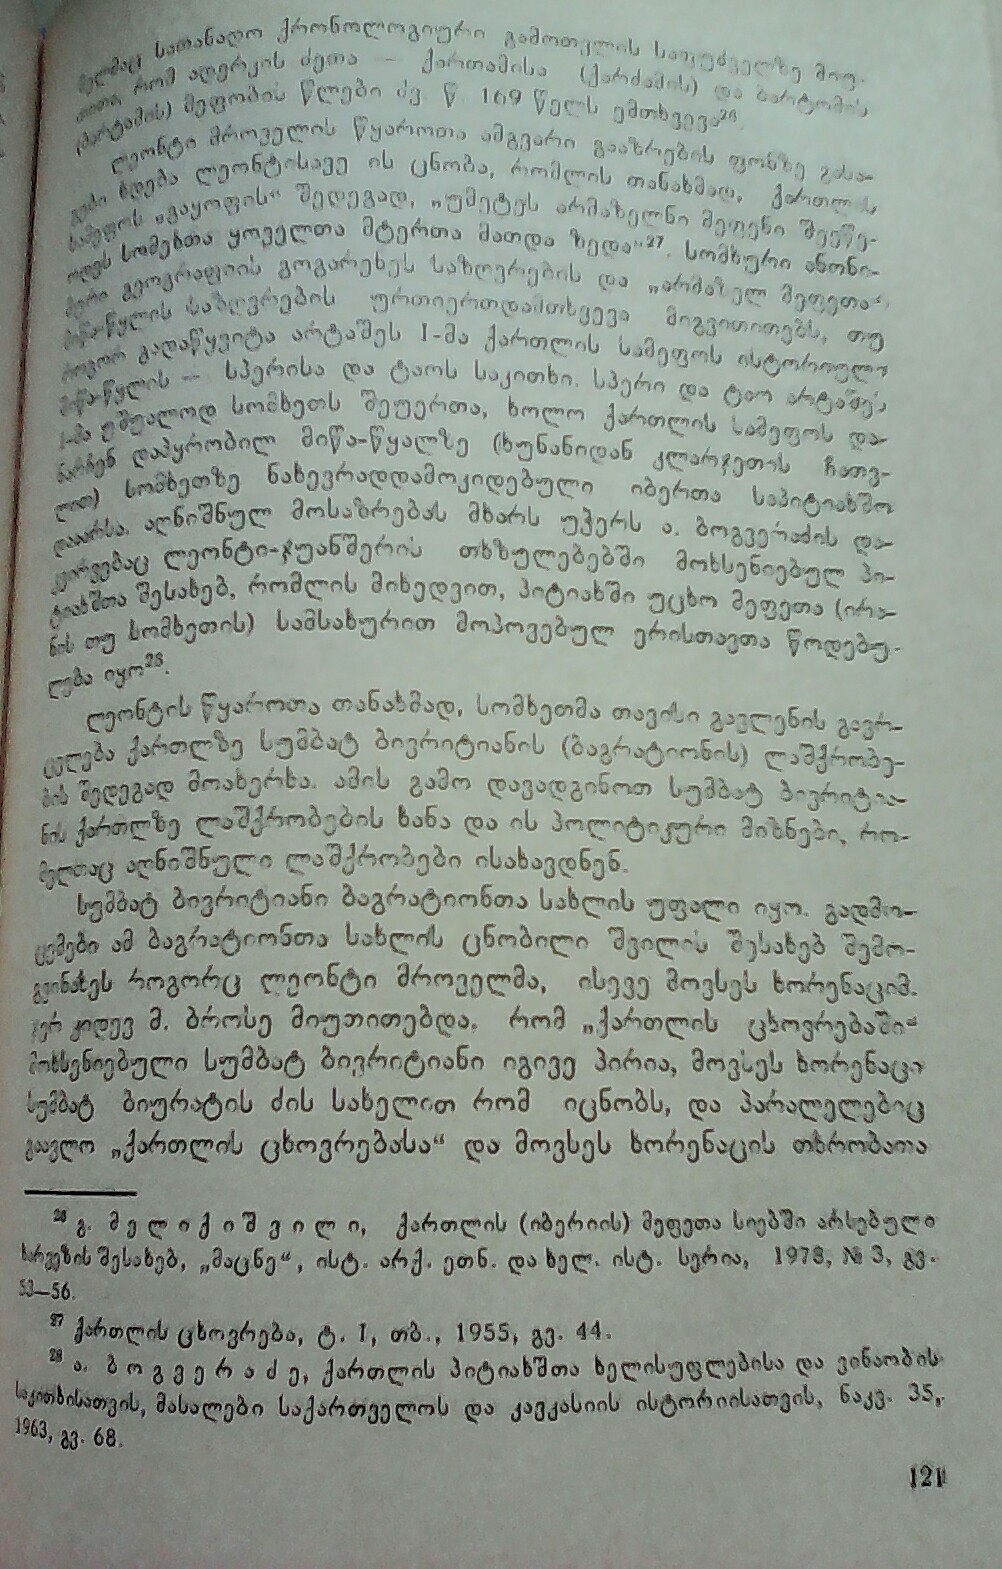 მელმაც სათანადო ქრონოლოგიური გამოთვლის საფუძველზე მიუ-
თითა, რომ ადერკის ძეთა — ქართამისა (ქარძამის) და ბარტომის
(ბარტამის) მეფობის წლები ძვ. წ. 169 წელს ემთხვევა²⁶.
ლეონტი მროველის წყაროთა ამგვარი გააზრების ფონზე გასა-
გები ხდება ლეონტისავე ის ცნობა, რომლის თანახმად, ქართლის
სამეფოს „გაყოფის“ შედეგად, „უმეტეს არმაზელნი მეფენი შეეწე-
ოდეს სომეხთა ყოველთა მტერთა მათდა ზედა“²⁷. სომხური ანონი-
მური გეოგრაფიის გოგარენეს საზღვრების და „არმაზელ მეფეთა“
მიწა-წყლის საზღვრების ურთიერთდამთხვევა მიგვითითებს, თუ
როგორ გადაწყვიტა არტაშეს I-მა ქართლის სამეფოს ისტორიული
მიწა-წყლის — სპერისა და ტაოს საკითხი. სპერი და ტაო არტაშეს
I-მა უშუალოდ სომხეთს შეუერთა, ხოლო ქართლის სამეფოს და-
ნარჩენ დაპყრობილ მიწა-წყალზე (ხუნანიდან კლარჯეთის ჩათვ-
ლით) სომხეთზე ნახევრადდამოკიდებული იბერთა საპიტიახშო
დააარსა. აღნიშნულ მოსაზრებას მხარს უჭერს ა. ბოგვერაძის და-
კვირვებაც ლეონტი-ჯუანშერის თხზულებებში მოხსენიებულ პი-
ტიახშთა შესახებ, რომლის მიხედვით, პიტიახში უცხო მეფეთა (ირა-
ნის თუ სომხეთის) სამსახურით მოპოვებულ ერისთავთა წოდებუ-
ლება იყო²⁸.
ლეონტის წყაროთა თანახმად, სომხეთმა თავისი გავლენის გავრ-
ცელება ქართლზე სუმბატ ბივრიტიანის (ბაგრატიონის) ლაშქრობე-
ბის შედეგად მოახერხა. ამის გამო დავადგინოთ სუმბატ ბივრიტია-
ნის ქართლზე ლაშქრობების ხანა და ის პოლიტიკური მიზნები, რო-
მელთაც აღნიშნული ლაშქრობები ისახავდნენ.
სუმბატ ბივრიტიანი ბაგრატიონთა სახლის უფალი იყო. გადმო-
ცემები ამ ბაგრატიონთა სახლის ცნობილი შვილის შესახებ შემო-
გვინახეს როგორც ლეონტი მროველმა, ისევე მოვსეს ხორენაციმ.
ჯერ კიდევ მ. ბროსე მიუთითებდა, რომ „ქართლის ცხოვრებაში“
მოხსენიებული სუმბატ ბივრიტიანი იგივე პირია, მოვსეს ხორენაცი
სუმბატ ბიურატის ძის სახელით რომ იცნობს, და პარალელებიც
გაავლო „ქართლის ცხოვრებასა“ და მოვსეს ხორენაცის თხრობათა
²⁶ გ. მელიქიშვილი, ქართლის (იბერიის) მეფეთა სიებში არსებული
ხარვეზის შესახებ, „მაცნე“, ისტ. არქ. ეთნ. და ხელ. ისტ. სერია, 1978, № 3, გვ.
53—56.
²⁷ ქართლის ცხოვრება, ტ. I, თბ., 1955, გვ. 44.
²⁸ ა. ბოგვერაძე, ქართლის პიტიახშთა ხელისუფლებისა და ვინაობის
საკითხისათვის, მასალები საქართველოს და კავკასიის ისტორიისათვის, ნაკვ. 35,
1963, გვ. 68.
121